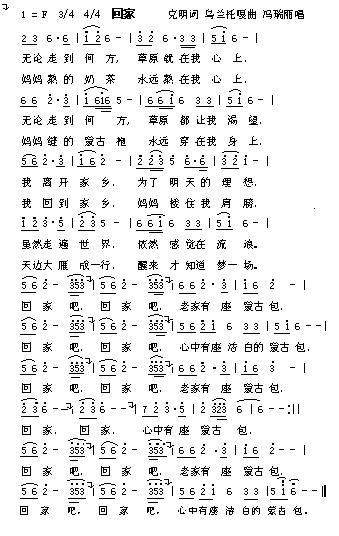 1 = F 3/4 4/4 回家 克明词 乌兰托嘎曲 冯瑞丽唱
2 3 6 · 6 | 1 2 6 - | 3 2 6 · 3 3 | 5 1 6 - |
无论走到 何 方, 草原就在我 心 上.
妈妈熬的 奶 茶 永远熬在我 心 上.
6 6 2 · 3 | 1 6 1 6 5 - | 6 6 1 6 3 3 | 5 1 6 - |
无论走到 何 方, 草原 都让我 渴 望.
妈妈缝的 蒙古 袍 永远 穿在我 身 上.
5 6 2 · 3 | 1 6 2 - | 2 2 3 5 6 · 6 | 3 2 1 - |
我 离开 家 乡. 为了 明天的 理 想.
我 回到 家 乡. 妈妈 搂住我 肩 膀.
1 2 3 · 5 | 2 3 5 - | 6 6 1 6 3 3 | 5 1 6 - |
虽然走遍 世 界. 依然 感觉在 流 浪。
天边大雁 成一行, 醒来 才知道 梦一场。
5 6 2 - 353 | 5 6 2 - 353 | 5 6 2 1 6 2 · | 6 - - |
回 家 吧, 回 家 吧. 老家有 座 蒙古 包.
5 6 2 - 353 | 5 6 2 - 353 | 5 6 2 1 6 3 3 | 5 1 6 - - |
回 家 吧, 回 家 吧. 心中有座 洁 白的 蒙古 包.
5 6 2 - 353 | 5 6 2 - 353 | 5 6 2 1 6 2 · | 3 - - |
回 家 吧, 回 家 吧. 老家有 座 蒙古 包.
2 3 6 - - | 2 3 6 - - | 7 2 3 · 5 | 2 323 6 | 6 - - :||
回 家. 回 家. 心中有座 蒙古 包.
5 6 2 - 353 | 5 6 2 - 353 | 5 6 2 1 6 2 · | 6 - - |
回 家 吧, 回 家 吧. 老家有 座 蒙古 包.
5 6 2 - 353 | 5 6 2 - 353 | 5 6 2 1 6 3 3 | 5 1 6 - - ||
回 家 吧. 回 家 吧. 心中有座 洁 白的 蒙古 包.